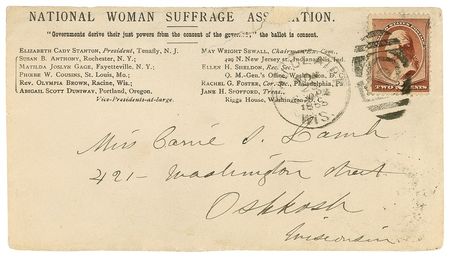 NATIONAL WOMAN SUFFRAGE ASSOCIATION.
"Governments derive their just powers from the consent of the governed," the ballot is consent.
ELIZABETH CADY STANTON, President, Tenafly, N. J.
SUSAN B. ANTHONY, Rochester, N. Y.;
MATILDA JOSLYN GAGE, Fayetteville, N. Y.;
PHOEBE W. COUSINS, St. Louis, Mo.;
REV. OLYMPIA BROWN, Racine, Wis.;
ABIGAIL SCOTT DUNIWAY, Portland, Oregon.
Vice-Presidents-at-large.
MAY WRIGHT SEWALL, Chairman Ex. Com.,
429 N. New Jersey St., Indianapolis, Ind.
ELLEN H. SHELDON, Rec. Sec.,
Q. M.-Gen.'s Office, Washington, D. C.
RACHEL G. FOSTER, Cor. Sec., Philadelphia, Pa.
JANE H. SPOFFORD, Treas.,
Riggs House, Washington, D. C.
WIS.
TWO CENTS
Miss Carrie S. Lamb
421 - Washington street
Oshkosh
Wisconsin